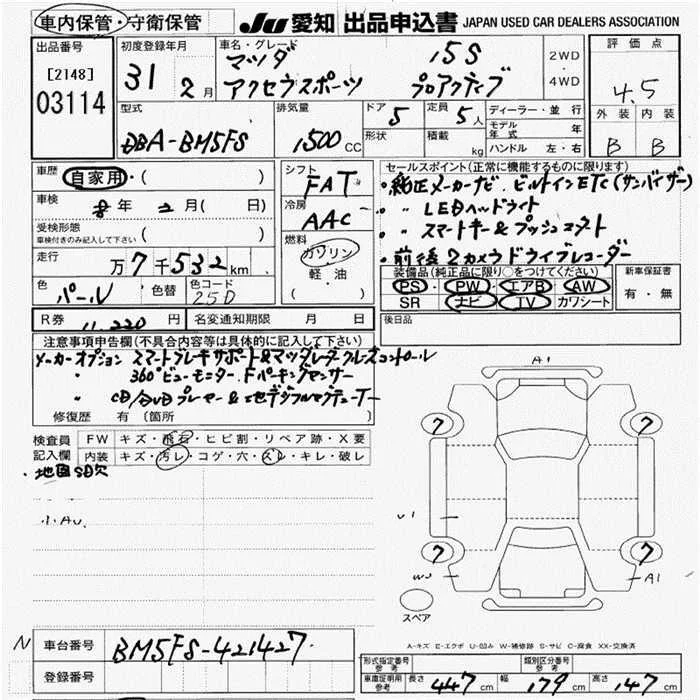 車内保管・守衛保管
JU 愛知 出品申込書 JAPAN USED CAR DEALERS ASSOCIATION
出品番号
[2148]
03114
初度登録年月
31 2月
車名・グレード
マツダ 15S
アクセラスポーツ プロアクティブ
2WD
・
4WD
評価点
4.5
外装 内装
B B
型式
DBA-BM5FS
排気量
1500CC
ドア 5
形状
定員 5人
積載 kg
ディーラー・並行
モデル年式 年
ハンドル 左・右
車歴
自家用・( )
車検
年 2月( 日)
受検形態
車検付きのみ記入して下さい ( )
走行
万7千532km
色 パール 色替 色コード 25D
シフト
FAT
冷房
AAC
燃料
ガソリン
・
軽・油
( )
セールスポイント(正常に機能するものに限ります)
・純正メーカーナビ ビルトインETC(サンバイザー)
・ 〃 LEDヘッドライト
・ 〃 スマートキー&プッシュスタート
・前後2カメラドライブレコーダー
装備品(純正品に限り○をつけてください)
PS・PW・エアB・AW
SR ナビ・TV カワシート
新車保証書
有・無
R券 11,220円 名変通知期限 月 日
後日品
注意事項申告欄(不具合内容等は具体的に記入して下さい)
メーカーオプション スマートブレーキサポート&マツダレーダークルーズコントロール
〃 360°ビューモニター.Fパーキングセンサー
〃 CD/DVDプレーヤー&地デジフルセグチューナー
修復歴 有(箇所 )
検査員
記入欄
FW キズ・飛石・ヒビ割・リペア跡・X要
内装 キズ・汚レ・コゲ・穴・スレ・キレ・破レ
・地図SD欠
小AU.
A1
7 7
U1
7 7
W3 A1
スペア
A-キズ E-エクボ U-凹み W-補修跡 S-サビ C-腐食 XX-交換済
N 車台番号 BM5FS-421427.
登録番号
形式指定番号 参考
類別区分番号 参考
車庫証明用 参考 長さ 447cm 幅 179cm 高さ 147cm